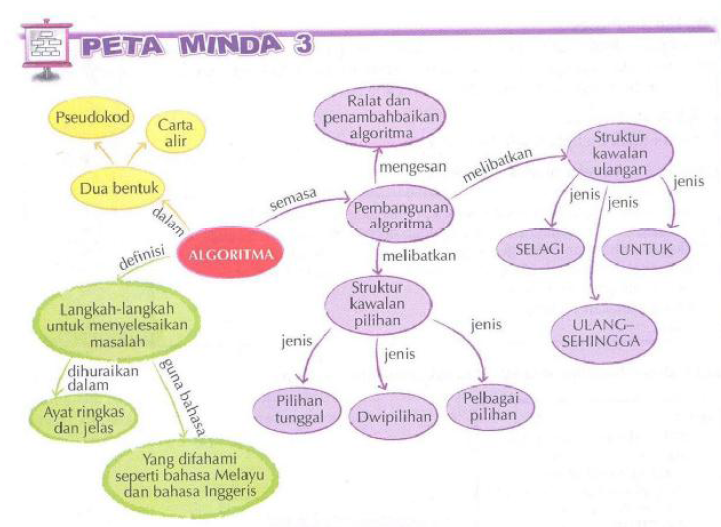 PETA MINDA 3
Pseudokod
Carta
alir
Dua bentuk
dalam
ALGORITMA
definisi
Langkah-langkah
untuk menyelesaikan
masalah
dihuraikan
dalam
Ayat ringkas
dan jelas
guna bahasa
Yang difahami
seperti bahasa Melayu
dan bahasa Inggeris
semasa
Pembangunan
algoritma
mengesan
Ralat dan
penambahbaikan
algoritma
melibatkan
Struktur
kawalan
ulangan
jenis
SELAGI
jenis
ULANG–
SEHINGGA
jenis
UNTUK
melibatkan
Struktur
kawalan
pilihan
jenis
Pilihan
tunggal
jenis
Dwipilihan
jenis
Pelbagai
pilihan